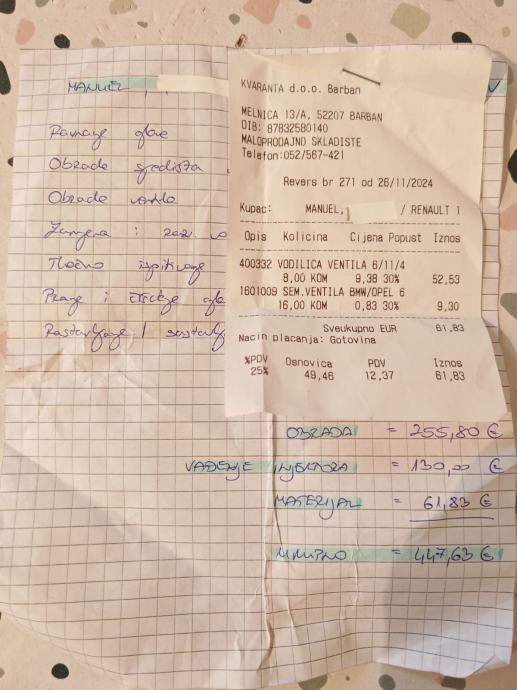 MANUEL,
V
Ravnanje glave
Obrada sjedišta
Obrada ventila
Zamjena i
Tlačno ispitivanje
Pranje i
Rastavljanje /
KVARANTA d.o.o. Barban
MELNICA 13/A, 52207 BARBAN
OIB: 87832580140
MALOPRODAJNO SKLADISTE
Telefon:052/567-421
Revers br 271 od 28/11/2024
Kupac: MANUEL, / RENAULT 1
Opis Kolicina Cijena Popust Iznos
400332 VODILICA VENTILA 6/11/4
8,00 KOM 9,38 30% 52,53
1601009 SEM.VENTILA BMW/OPEL 6
16,00 KOM 0,83 30% 9,30
Sveukupno EUR 61,83
Nacin placanja: Gotovina
%PDV Osnovica PDV Iznos
25% 49,46 12,37 61,83
OBRADA = 255,80 €
VAĐENJE INJEKTORA = 130,00 €
MATERIJAL = 61,83 €
UKUPNO = 447,63 €